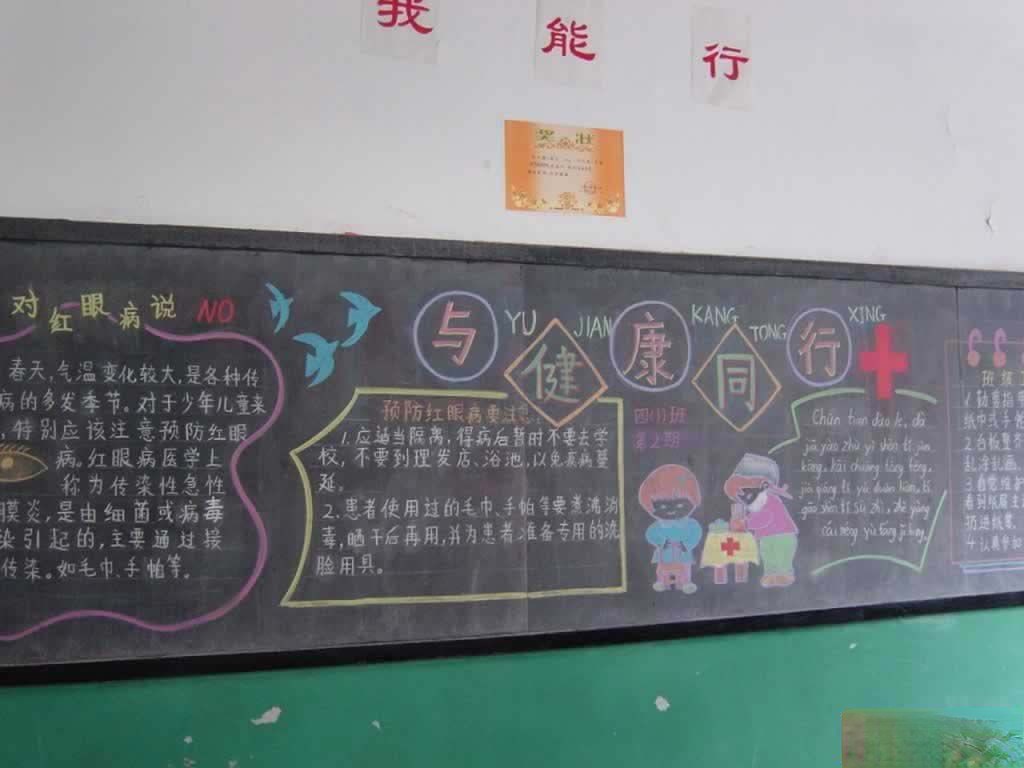 我能行
奖状
与健康同行
YU JIAN KANG TONG XING
对红眼病说 NO
春天,气温变化较大,是各种传
病的多发季节。对于少年儿童来
,特别应该注意预防红眼
病。红眼病医学上
称为传染性急性
膜炎,是由细菌或病毒
染引起的,主要通过接
传染。如毛巾、手帕等。
预防红眼病要注意:
1.应适当隔离,得病后暂时不要去学
校,不要到理发店、浴池,以免疾病蔓
延。
2.患者使用过的毛巾、手帕等要煮沸消
毒,晒干后再用,并为患者准备专用的洗
脸用具。
四(1)班
第2期
Chūn tiān dào le, dà
jiā yào zhù yì shēn tǐ jiàn
kāng, kāi chuāng tōng fēng,
jiā qiáng tǐ yù duàn liàn, tí
gāo shēn tǐ sù zhì, zhè yàng
cái néng yù fáng jí bìng.
班级
纸巾或手帕
乱涂乱画。
3.自觉维护
看到纸屑主
扔进纸篓。
4.认真参加